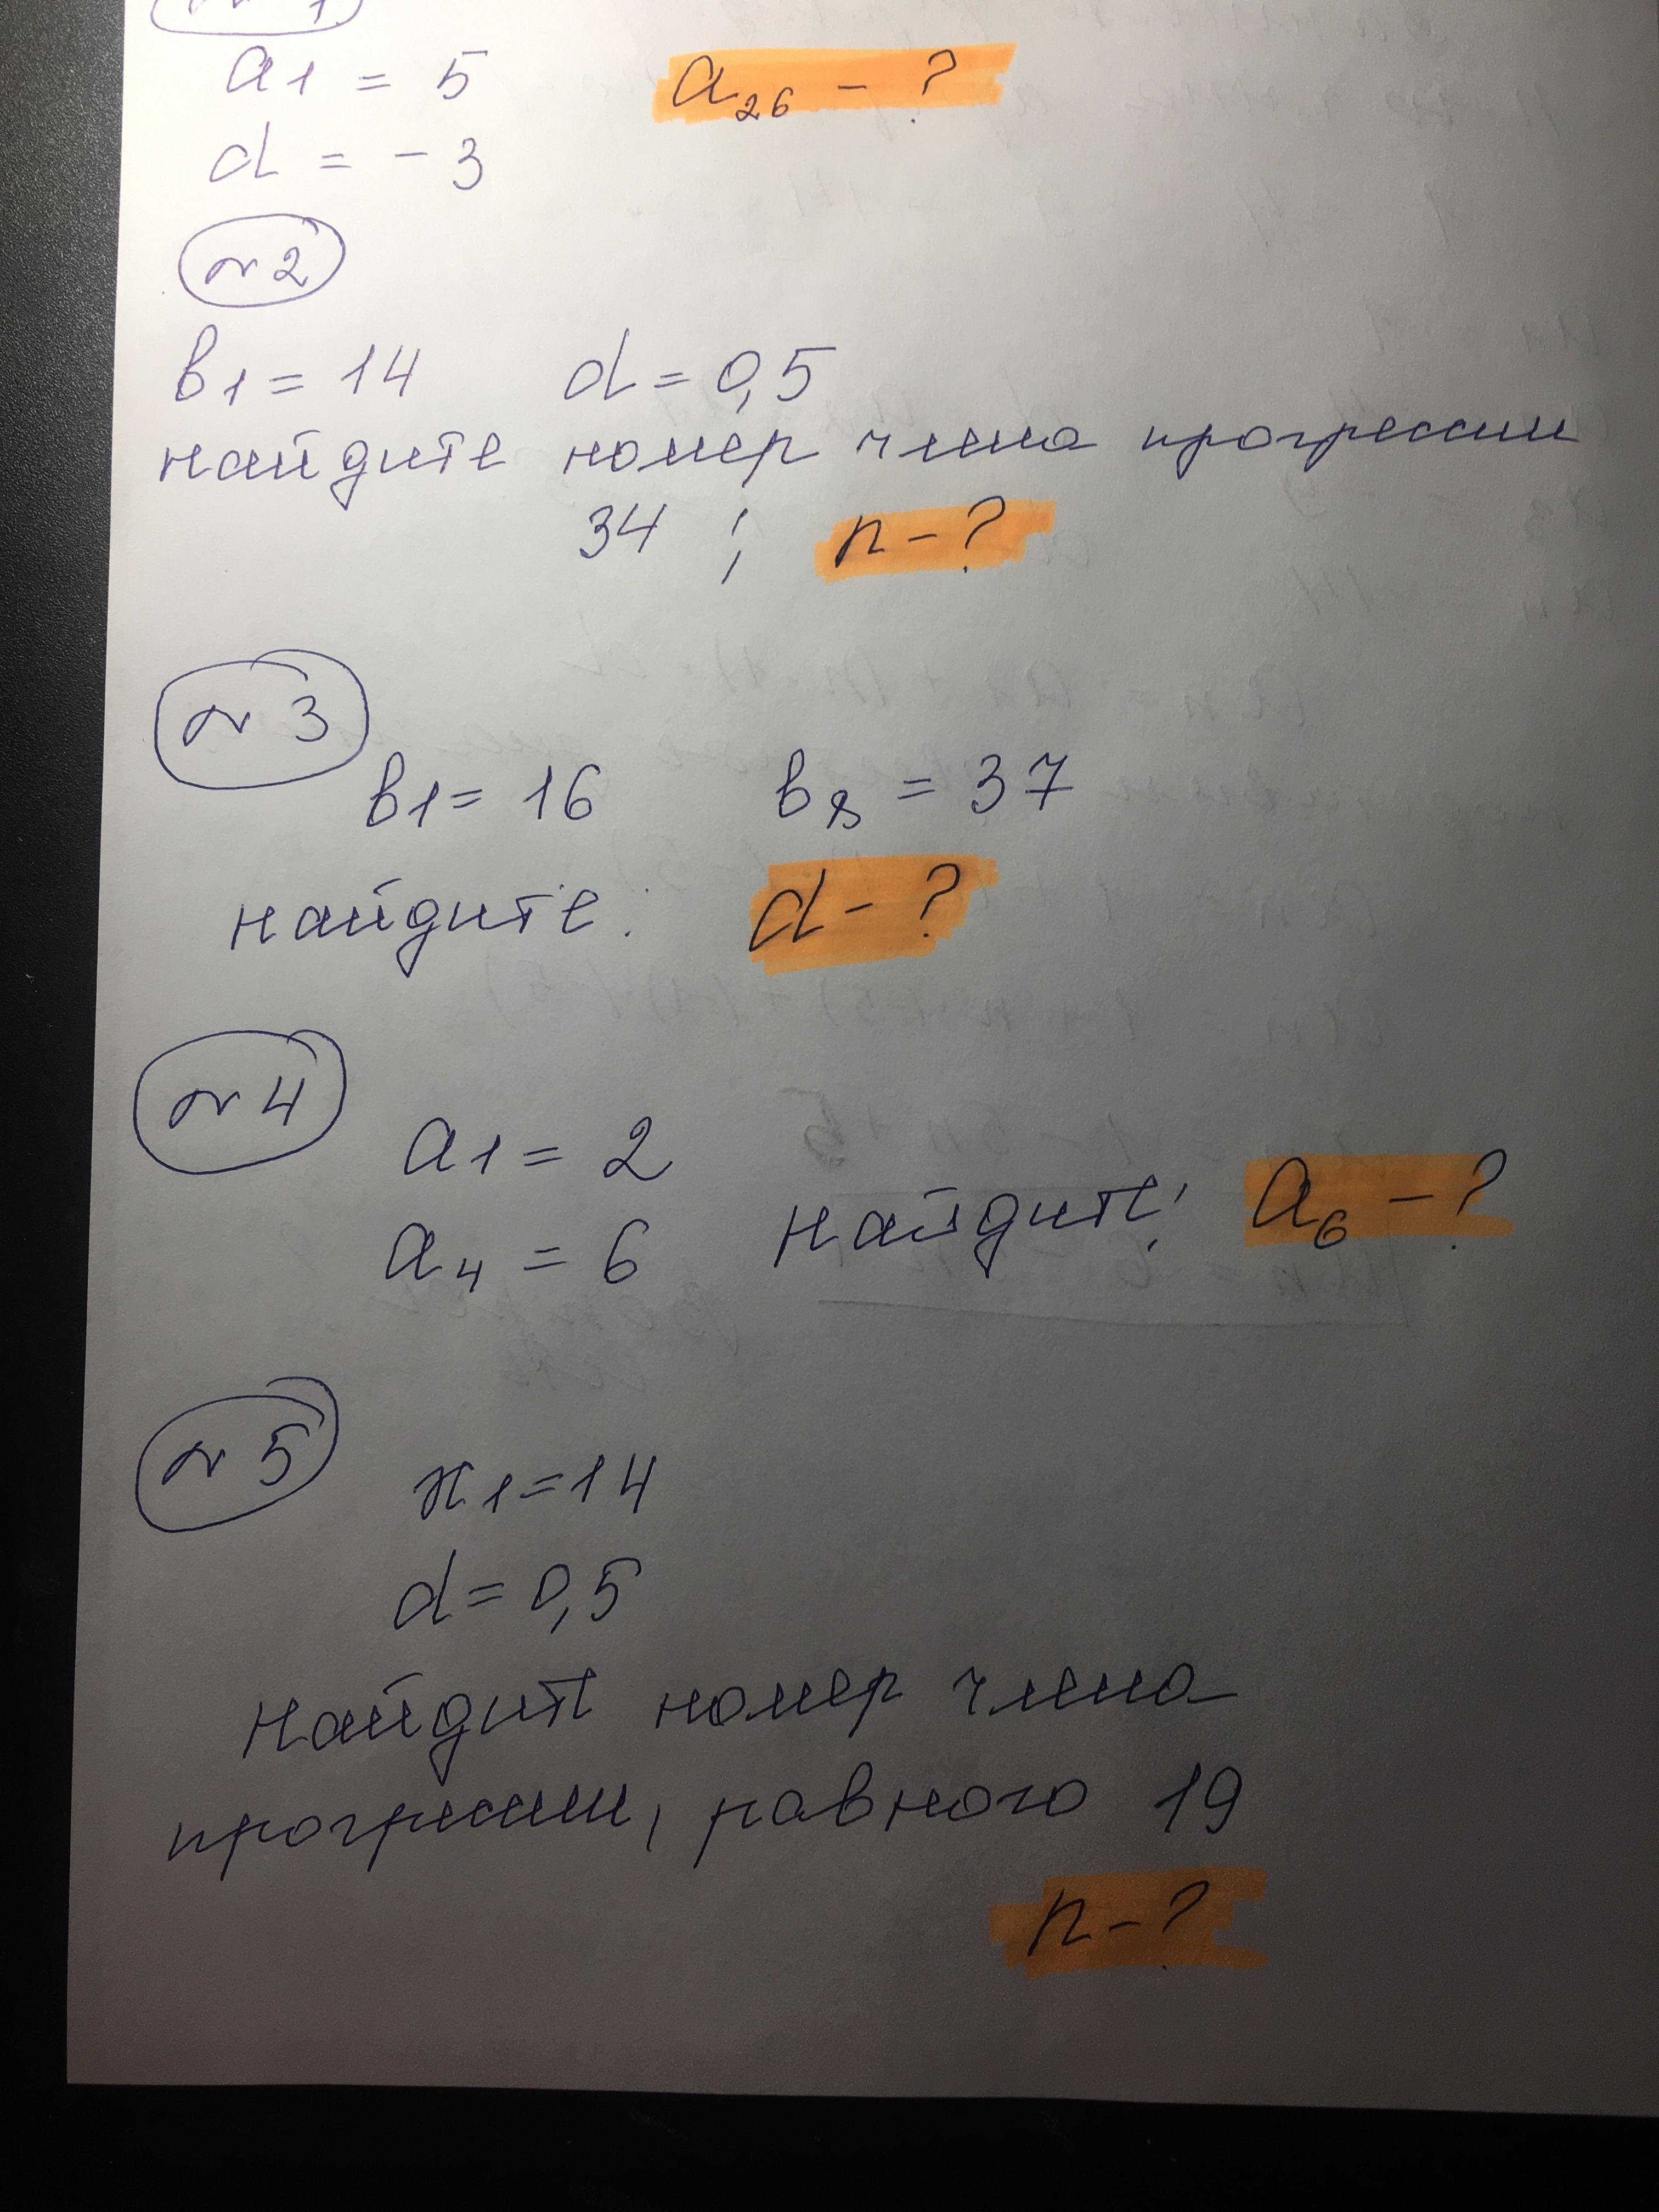 № 1
a1 = 5 a26 - ?
d = - 3
№ 2
b1 = 14 d = 0,5
найдите номер члена прогрессии
34 ; n - ?
№ 3
b1 = 16 b8 = 37
найдите: d - ?
№ 4
a1 = 2
a4 = 6 найдите: a6 - ?
№ 5
x1 = 14
d = 0,5
найдите номер члена
прогрессии, равного 19
n - ?